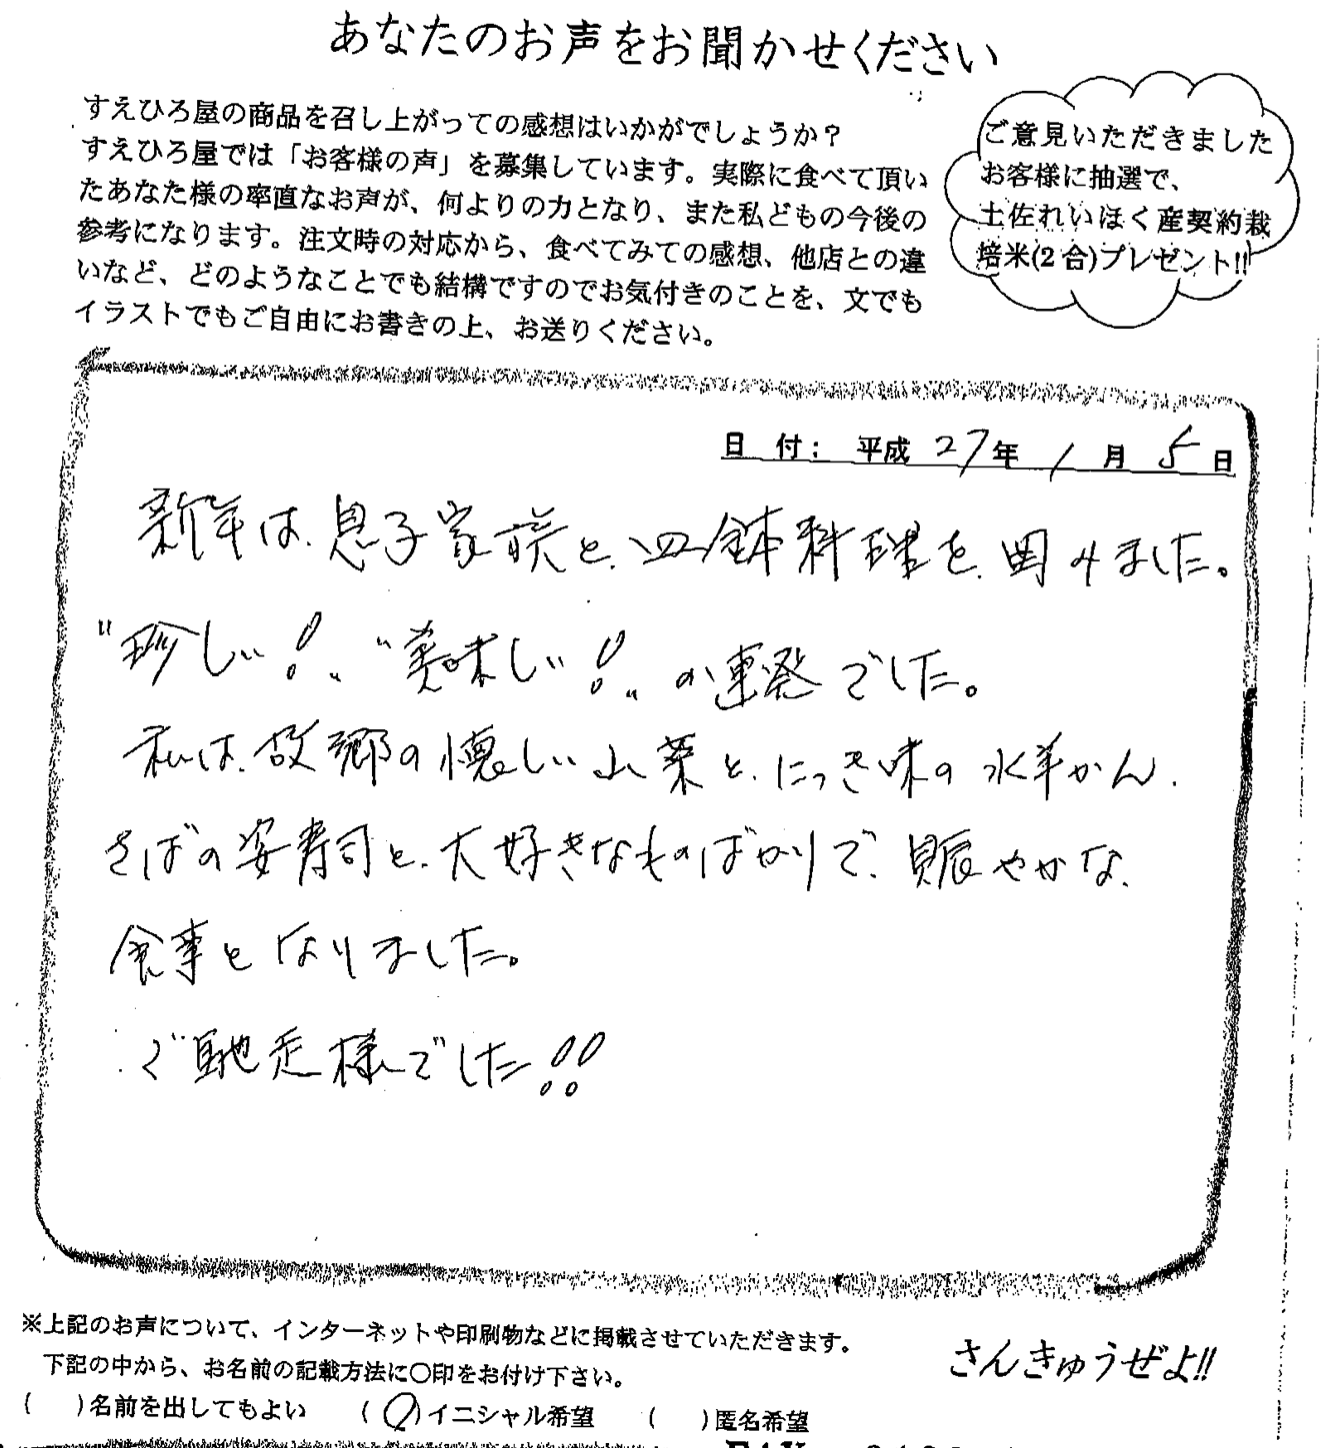 あなたのお声をお聞かせください
すえひろ屋の商品を召し上がっての感想はいかがでしょうか？
すえひろ屋では「お客様の声」を募集しています。実際に食べて頂い
たあなた様の率直なお声が、何よりの力となり、また私どもの今後の
参考になります。注文時の対応から、食べてみての感想、他店との違
いなど、どのようなことでも結構ですのでお気付きのことを、文でも
イラストでもご自由にお書きの上、お送りください。
ご意見いただきました
お客様に抽選で、
土佐れいほく産契約栽
培米(2合)プレゼント!!
日 付： 平成 27年 1月 5日
新年は、息子家族と、皿鉢料理を、囲みました。
"珍しい！"、"美味しい！"の連発でした。
私は、故郷の懐しい山菜と、にっき味の水羊かん、
さばの姿寿司と、大好きなものばかりで、賑やかな、
食事となりました。
ご馳走様でした!!
※上記のお声について、インターネットや印刷物などに掲載させていただきます。
下記の中から、お名前の記載方法に○印をお付け下さい。
(　)名前を出してもよい　(○)イニシャル希望　(　)匿名希望
さんきゅうぜよ!!